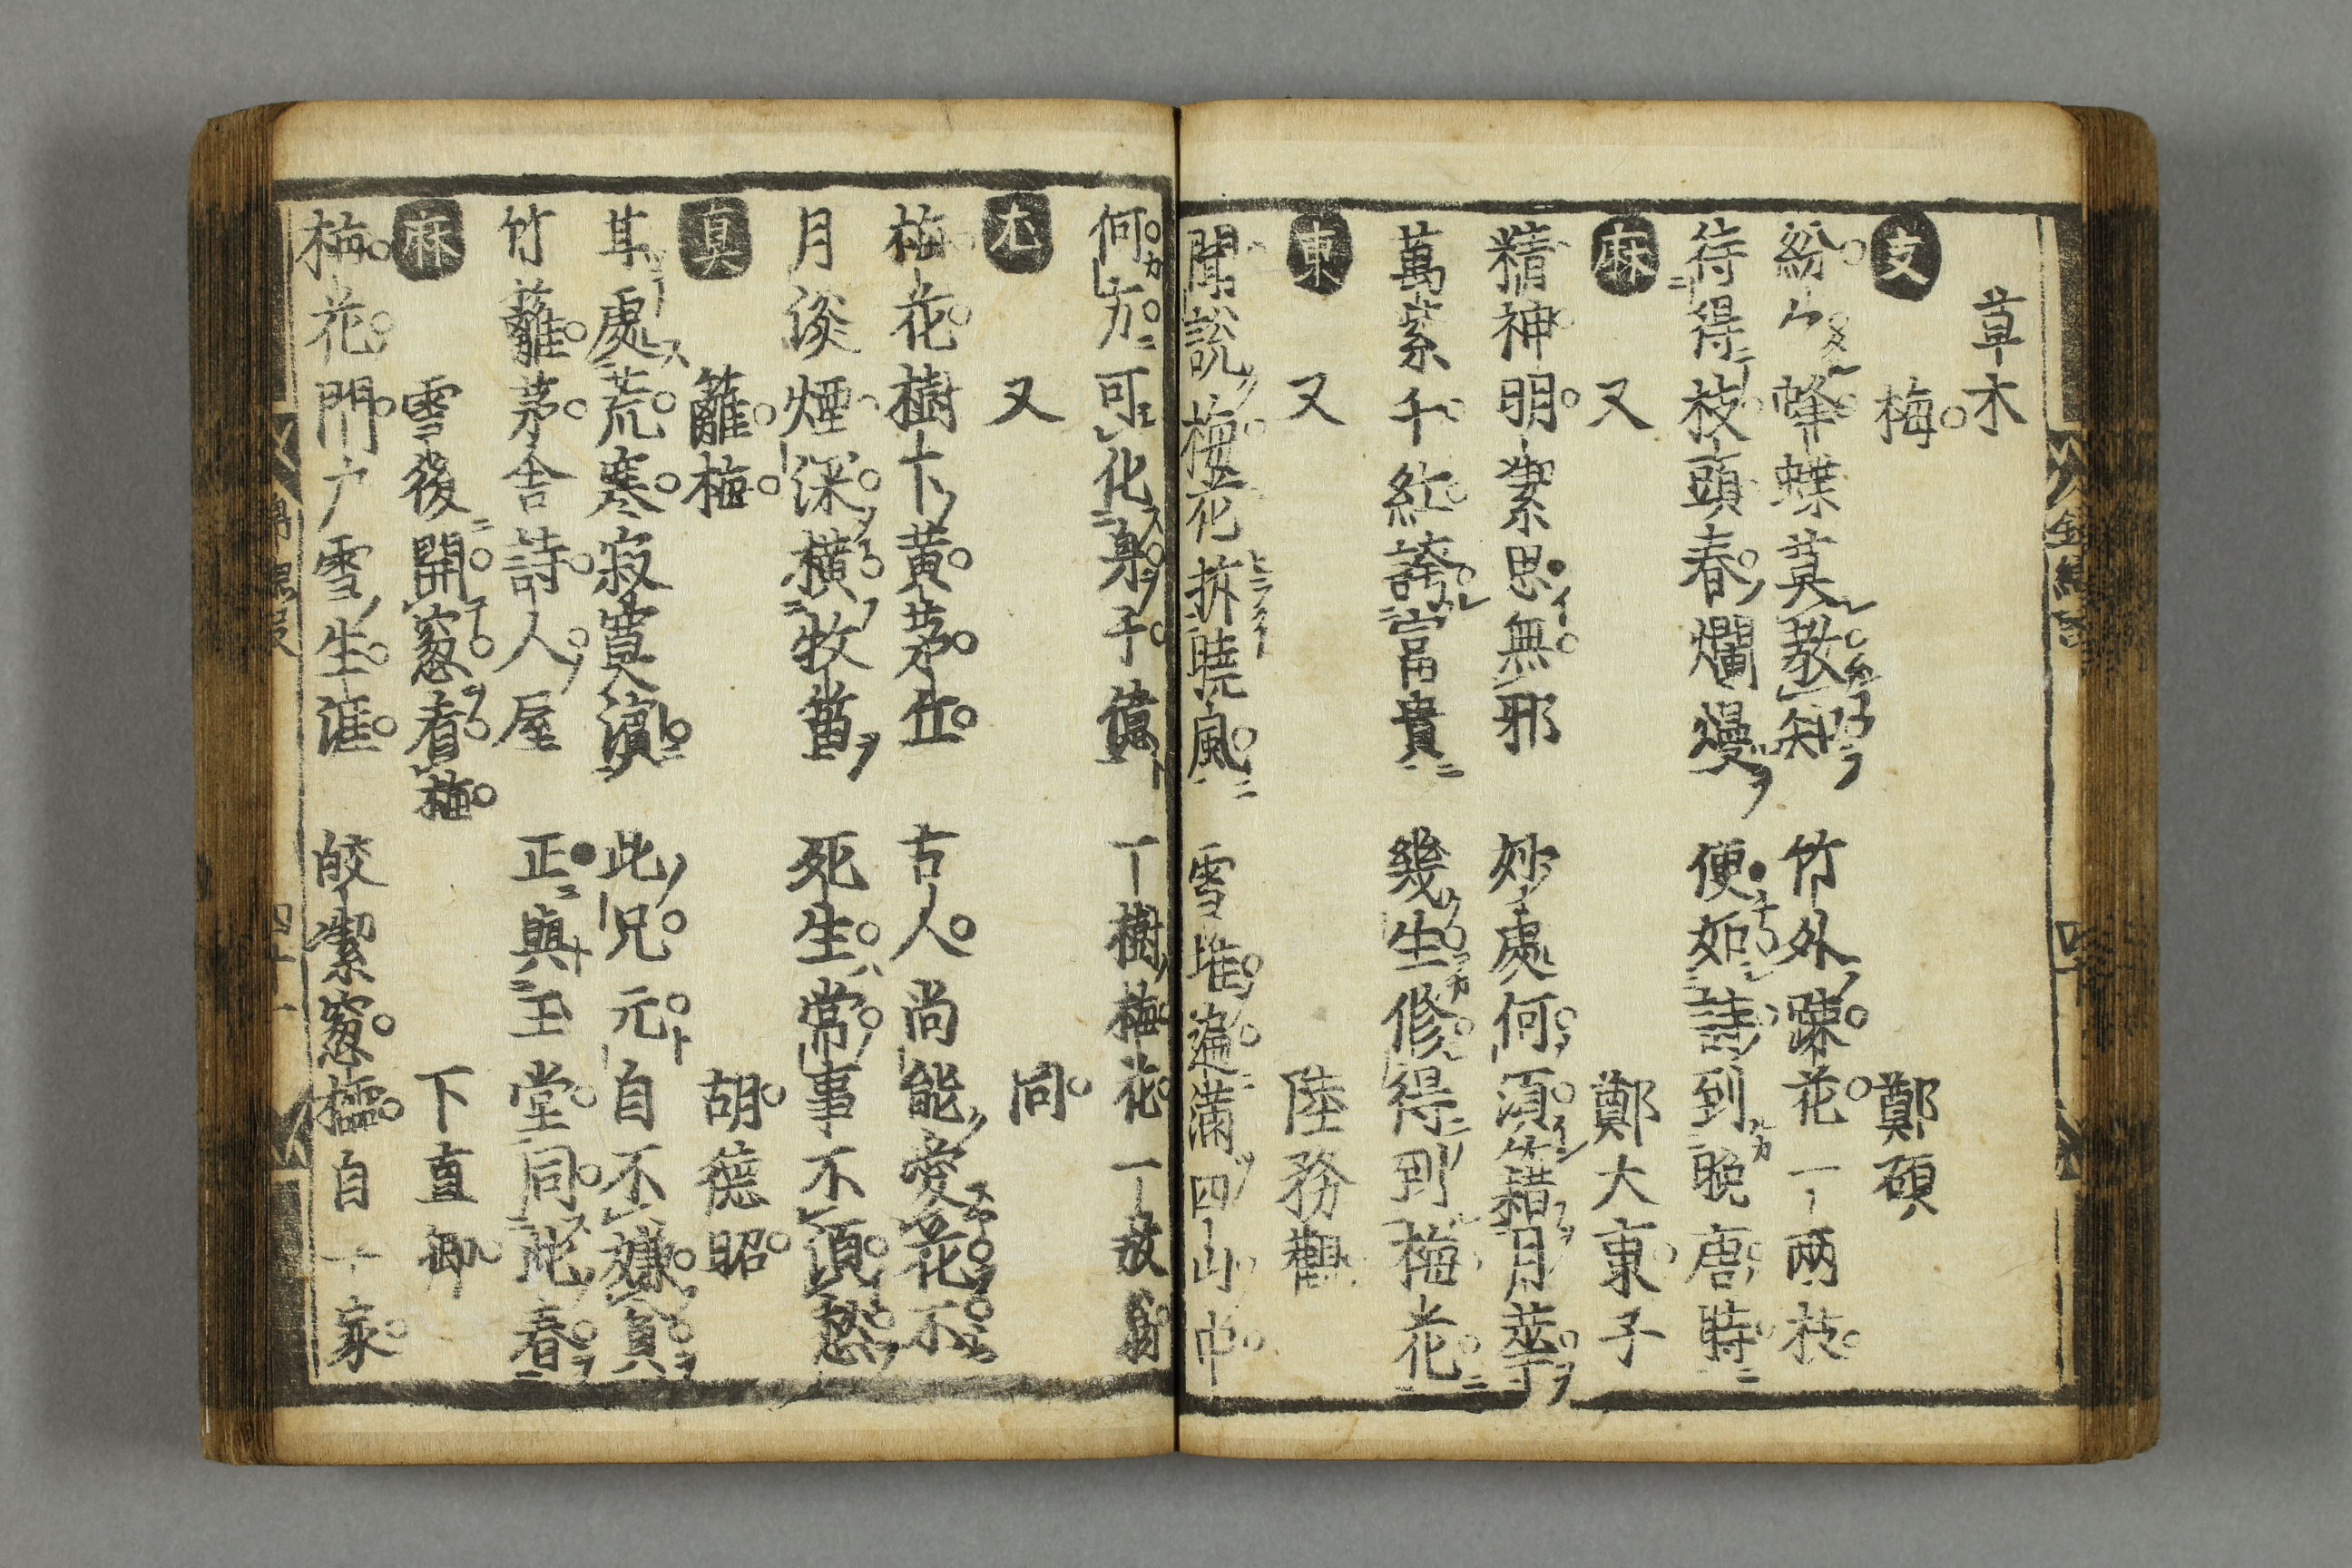 草木
支 梅 鄭碩
紛〻蜂蝶莫教知 竹外踈花一両枝
待得枝頭春爛熳 便如詩到晩唐時
麻 又 鄭大東子
精神明潔思無邪 妙處何須藉月華
萬紫千紅誇富貴 幾生修得到梅花
東 又 陸務觀
聞説梅花拆曉風 雪堆遍滿四山中
何方可化身千億 一樹梅花一放翁
尤 又 同
梅花樹下黄茅丘 古人尚能愛花不
月淡煙深橫牧笛 死生常事不須愁
真 籬梅 胡德昭
耳處荒寒寂寞濱 此兄元自不嫌貧
竹籬茅舍詩人屋 正與玉堂同此春
麻 雪後開窓看梅 下直卿
梅花門戸雪生涯 皎潔窓櫺自一家